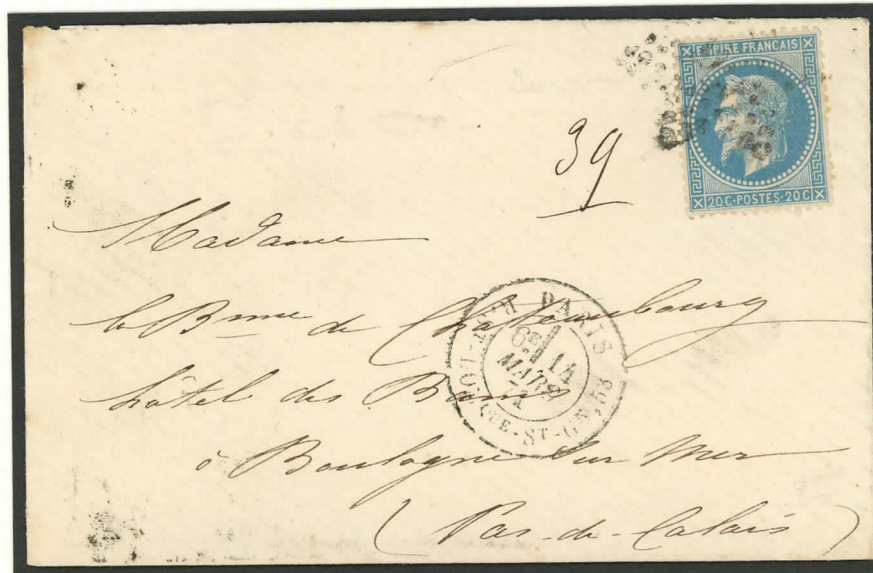 EMPIRE FRANÇAIS
20 C · POSTES · 20 C
39
Madame
la Bnne de Chateaubourg
hôtel des Bains
à Boulogne sur Mer
(Pas-de-Calais)
PARIS
6E
14
MARS
71
R. ST-DOMQUE-ST-GN, 53